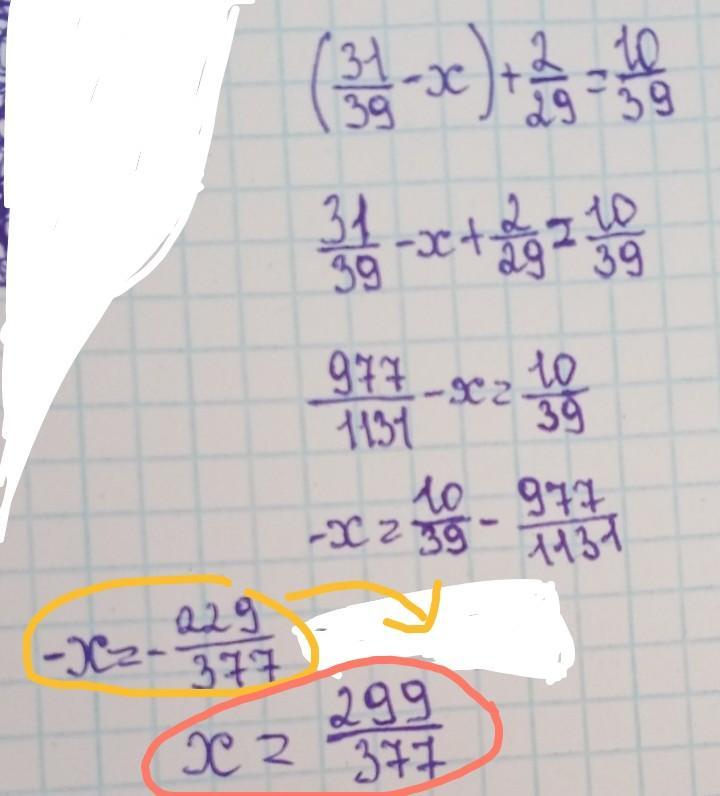 (31/39 - x) + 2/29 = 10/39
31/39 - x + 2/29 = 10/39
977/1131 - x = 10/39
-x = 10/39 - 977/1131
-x = - 229/377
x = 299/377